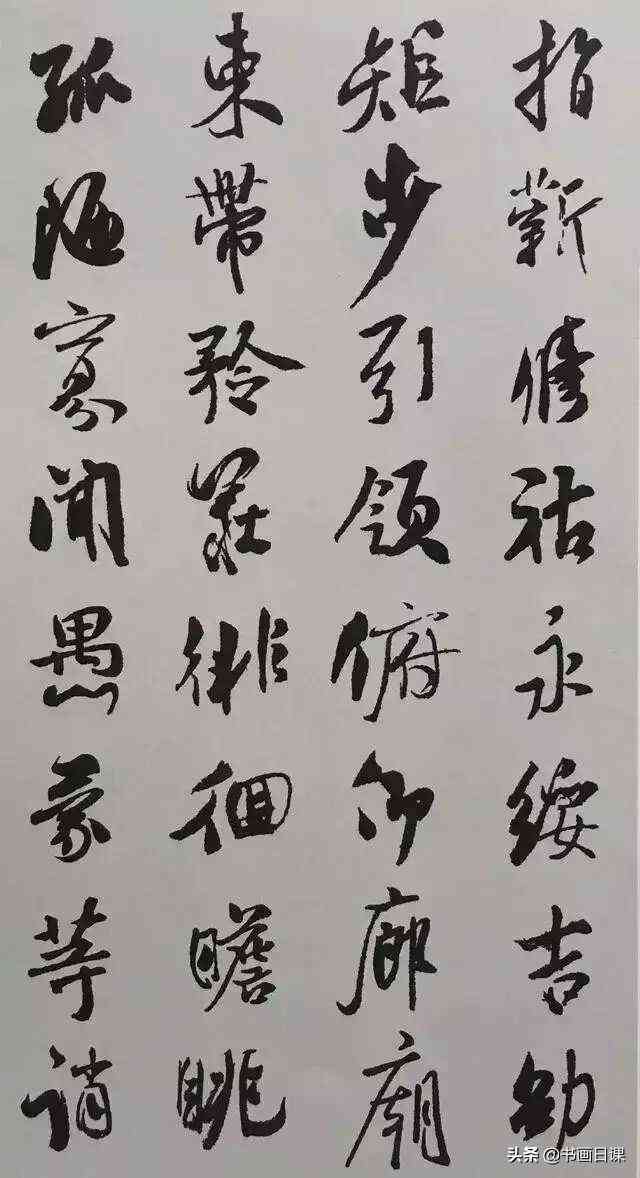 指薪修祜永綏吉劭
矩步引領俯仰廊廟
束帶矜莊徘徊瞻眺
孤陋寡聞愚蒙等誚
头条 @书画日课